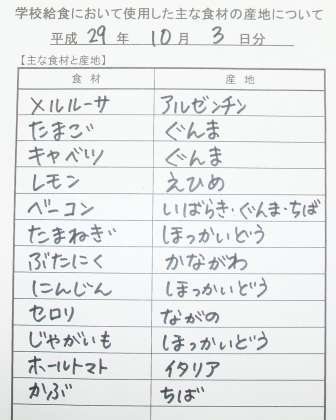 学校給食において使用した主な食材の産地について
平成 29 年 10 月 3 日分
【主な食材と産地】
食材 産地
メルルーサ アルゼンチン
たまご ぐんま
キャベツ ぐんま
レモン えひめ
ベーコン いばらき・ぐんま・ちば
たまねぎ ほっかいどう
ぶたにく かながわ
にんじん ほっかいどう
セロリ ながの
じゃがいも ほっかいどう
ホールトマト イタリア
かぶ ちば